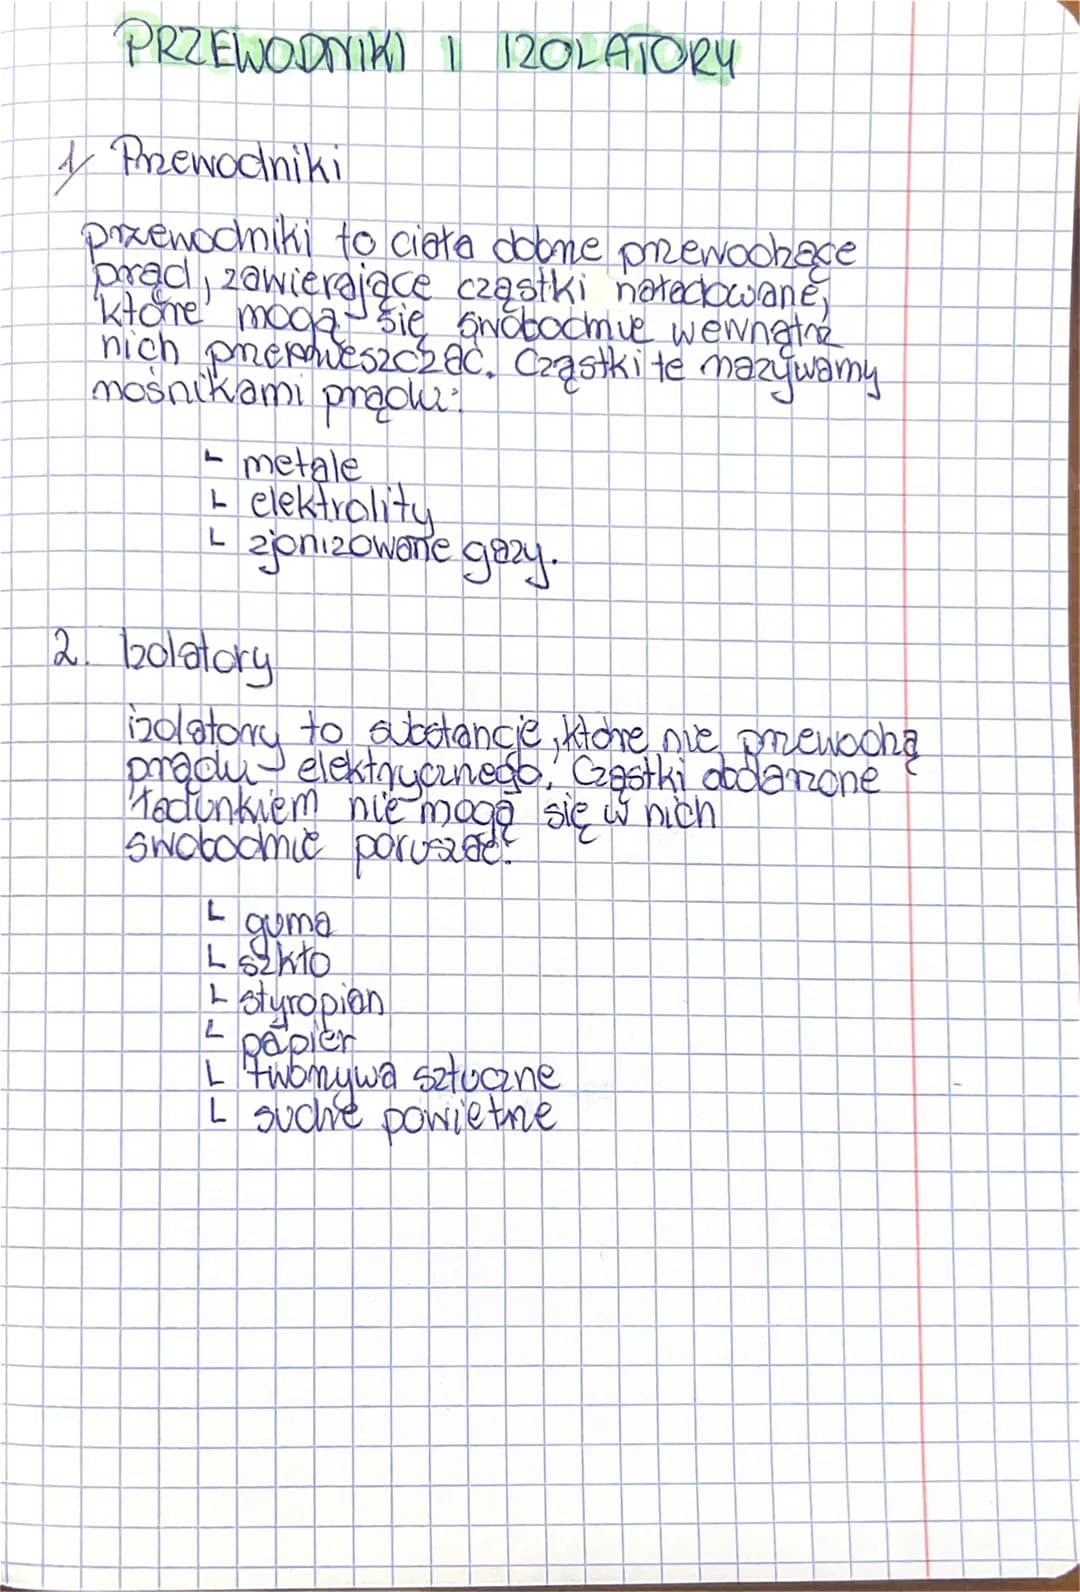 PRZEWODNIKI I IZOLATORY
1/ Przewodniki
przewodniki to ciała dobrze przewodzące
prąd, zawierające cząstki naładowane,
które mogą się swobodnie wewnątrz
nich przemieszczać. Cząstki te nazywamy
nośnikami prądu:
- metale
- elektrolity
- zjonizowane gazy.
2. Izolatory
izolatory to substancje, które nie przewodzą
prądu elektrycznego. Cząstki obdarzone
ładunkiem nie mogą się w nich
swobodnie poruszać:
- guma
- szkło
- styropian
- papier
- tworzywa sztuczne
- suche powietrze